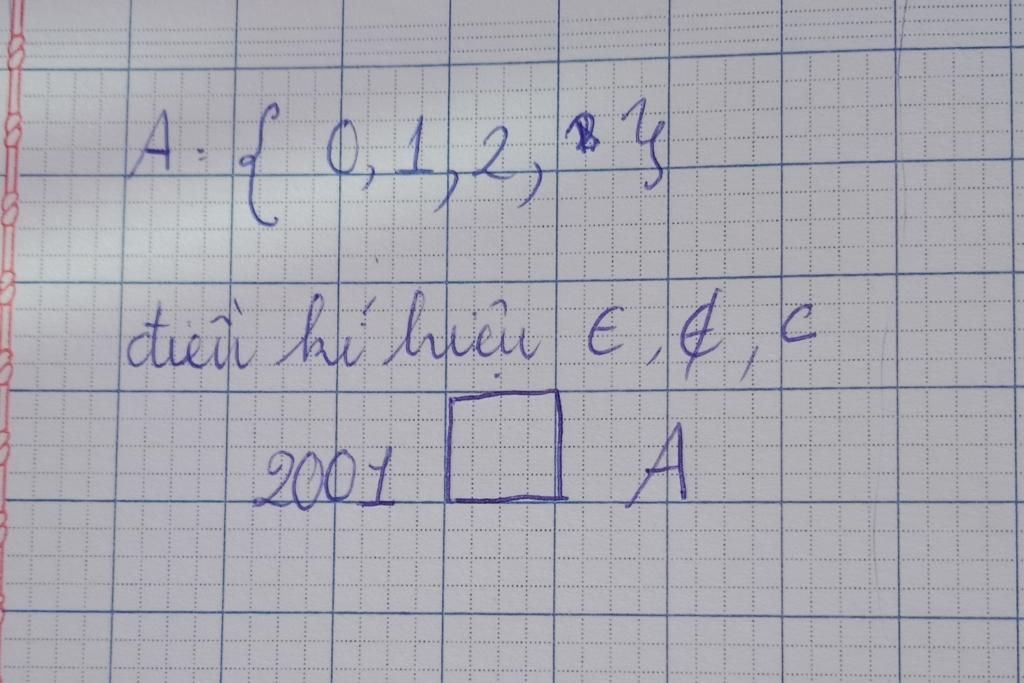 A = { 0, 1, 2, }
điền kí hiệu ∈, ∉, ⊂
2001 □ A